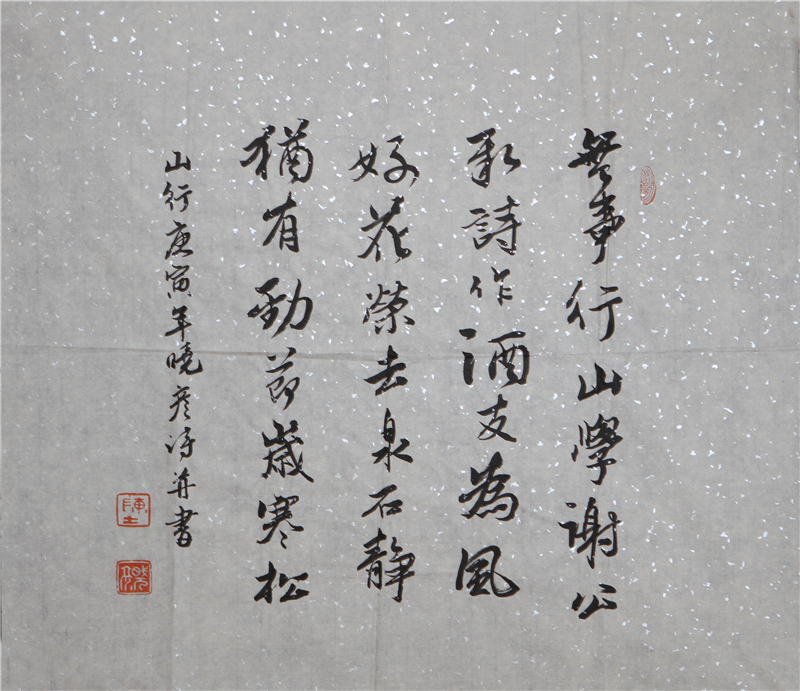 無事行山學謝公
取詩作酒支為風
好花榮去泉石靜
猶有勁節歲寒松
山行庚寅年曉彦詩并書